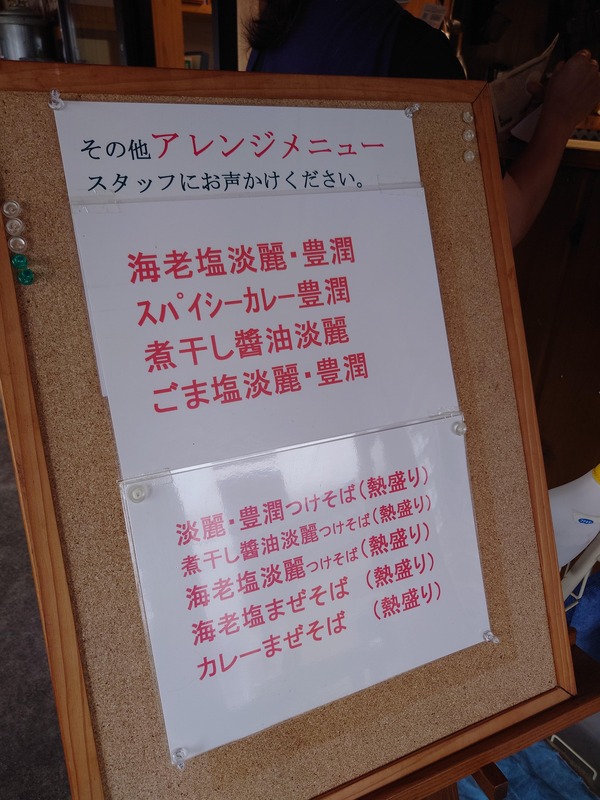 その他アレンジメニュー
スタッフにお声かけください。
海老塩淡麗・豊潤
スパイシーカレー豊潤
煮干し醬油淡麗
ごま塩淡麗・豊潤
淡麗・豊潤つけそば(熱盛り)
煮干し醬油淡麗つけそば(熱盛り)
海老塩淡麗つけそば(熱盛り)
海老塩まぜそば (熱盛り)
カレーまぜそば (熱盛り)